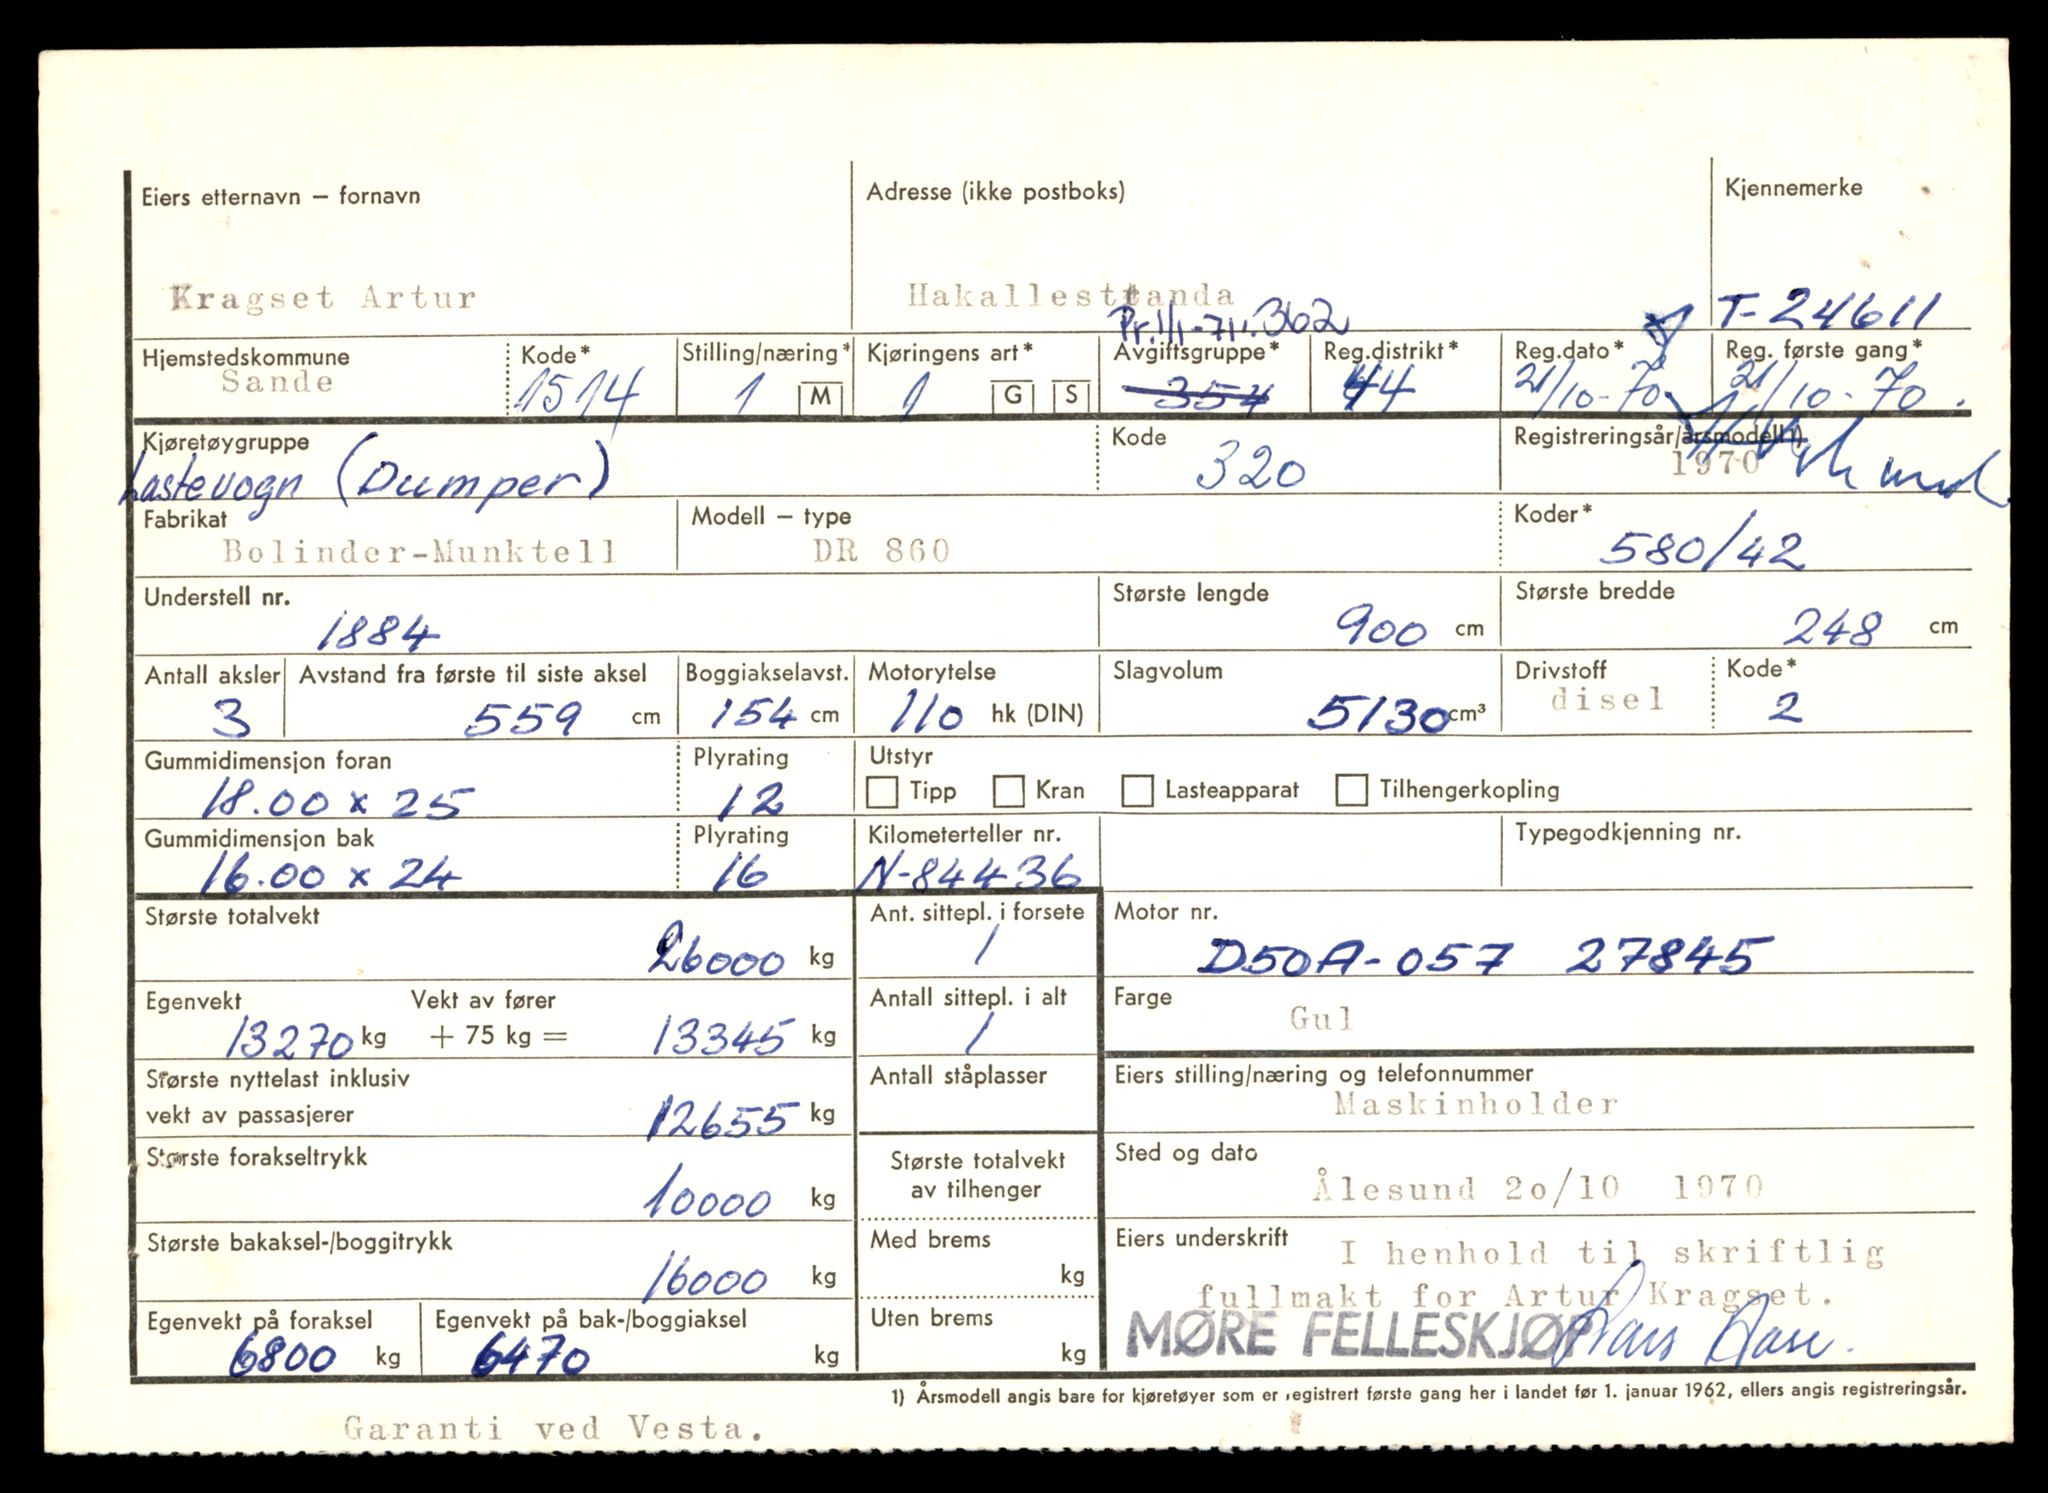 Eiers etternavn – fornavn Adresse (ikke postboks) Kjennemerke
Kragset Artur Hakallestranda T-24611
Pr. 1/1-71: 362
Hjemstedskommune Kode* Stilling/næring* Kjøringens art* Avgiftsgruppe* Reg.distrikt* Reg.dato* Reg. første gang*
Sande 1514 1 M 1 G S 354 44 21/10-70 21/10-70.
Kjøretøygruppe Kode Registreringsår/årsmodell 1)
Lastevogn (Dumper) 320 1970
Fabrikat Modell – type Koder*
Bolinder-Munktell DR 860 580/42
Understell nr. Største lengde Største bredde
1884 900 cm 248 cm
Antall aksler Avstand fra første til siste aksel Boggiakselavst. Motorytelse Slagvolum Drivstoff Kode*
3 559 cm 154 cm 110 hk (DIN) 5130 cm³ disel 2
Gummidimensjon foran Plyrating Utstyr
18.00 x 25 12 Tipp Kran Lasteapparat Tilhengerkopling
Gummidimensjon bak Plyrating Kilometerteller nr. Typegodkjenning nr.
16.00 x 24 16 N-84436
Største totalvekt Ant. sittepl. i forsete Motor nr.
26000 kg 1 D50A-057 27845
Egenvekt Vekt av fører Antall sittepl. i alt Farge
13270 kg + 75 kg = 13345 kg 1 Gul
Største nyttelast inklusiv Antall ståplasser Eiers stilling/næring og telefonnummer
vekt av passasjerer 12655 kg Maskinholder
Største forakseltrykk Største totalvekt Sted og dato
10000 kg av tilhenger Ålesund 2o/10 1970
Største bakaksel-/boggitrykk Med brems Eiers underskrift I henhold til skriftlig
16000 kg kg fullmakt for Artur Kragset.
Egenvekt på foraksel Egenvekt på bak-/boggiaksel Uten brems MØRE FELLESKJØP
6800 kg 6470 kg kg
1) Årsmodell angis bare for kjøretøyer som er registrert første gang her i landet før 1. januar 1962, ellers angis registreringsår.
Garanti ved Vesta.